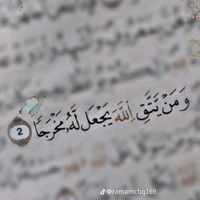 وَمَنْ يَتَّقِ اللَّهَ يَجْعَلْ لَهُ مَخْرَجًا 2
@ramamcbg169